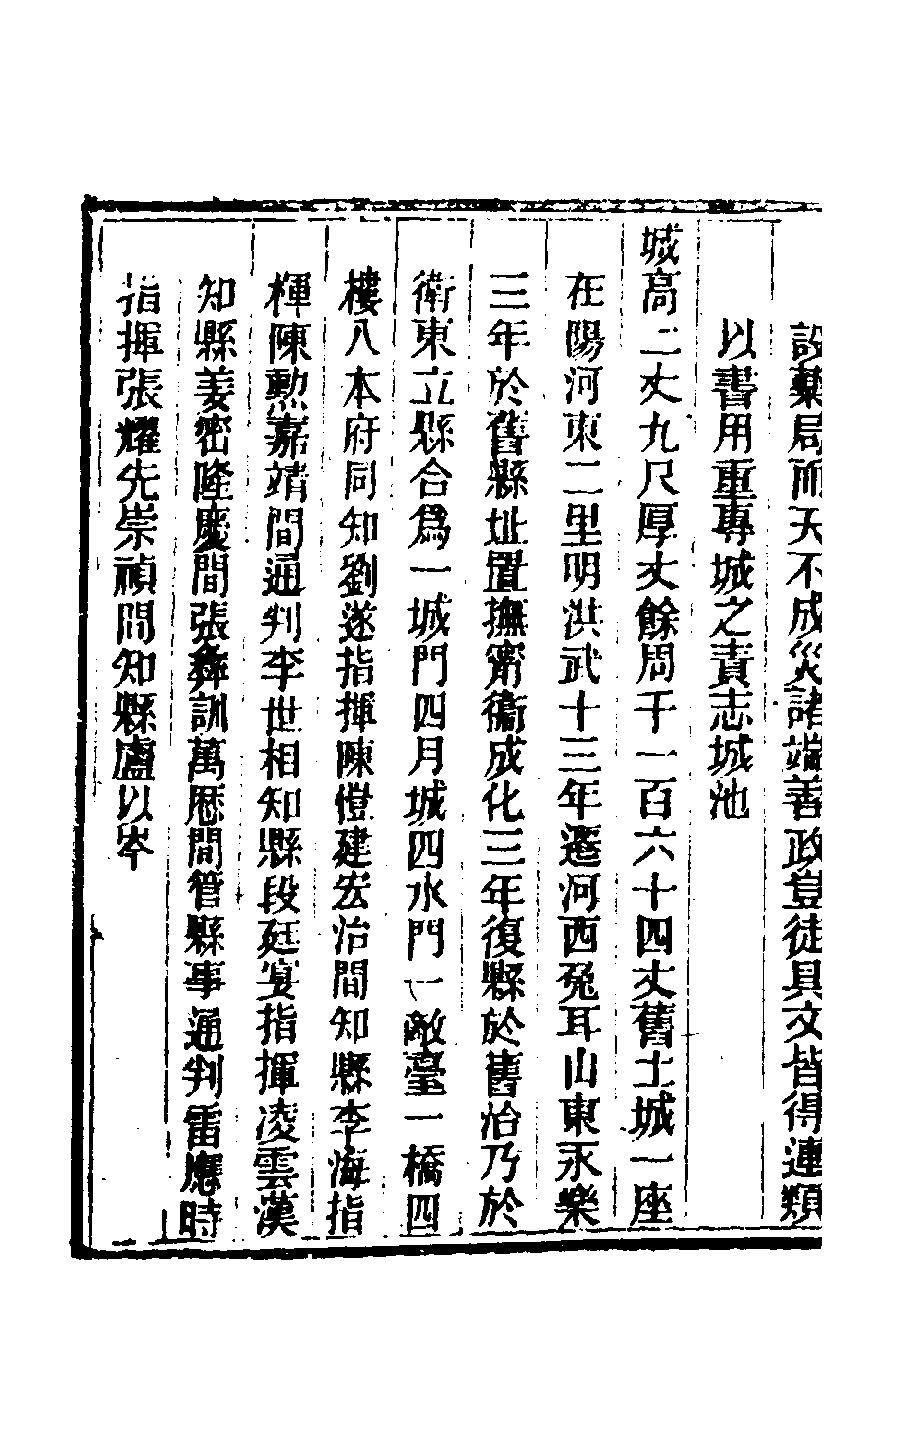 設藥局而天不成災諸端善政豈徒具文皆得連類
以書用重專城之責志城池
城高二丈九尺厚丈餘周千一百六十四丈舊土城一座
在陽河東二里明洪武十三年遷河西兔耳山東永樂
三年於舊縣址置撫甯衞成化三年復縣於舊治乃於
衛東立縣合爲一城門四月城四水門一敵臺一橋四
樓八本府同知劉遂指揮陳愷建宏治間知縣李海指
揮陳勲嘉靖間通判李世相知縣段廷宴指揮凌雲漢
知縣姜密隆慶間張彝訓萬厯間管縣事通判雷應時
指揮張耀先崇禎間知縣盧以岑